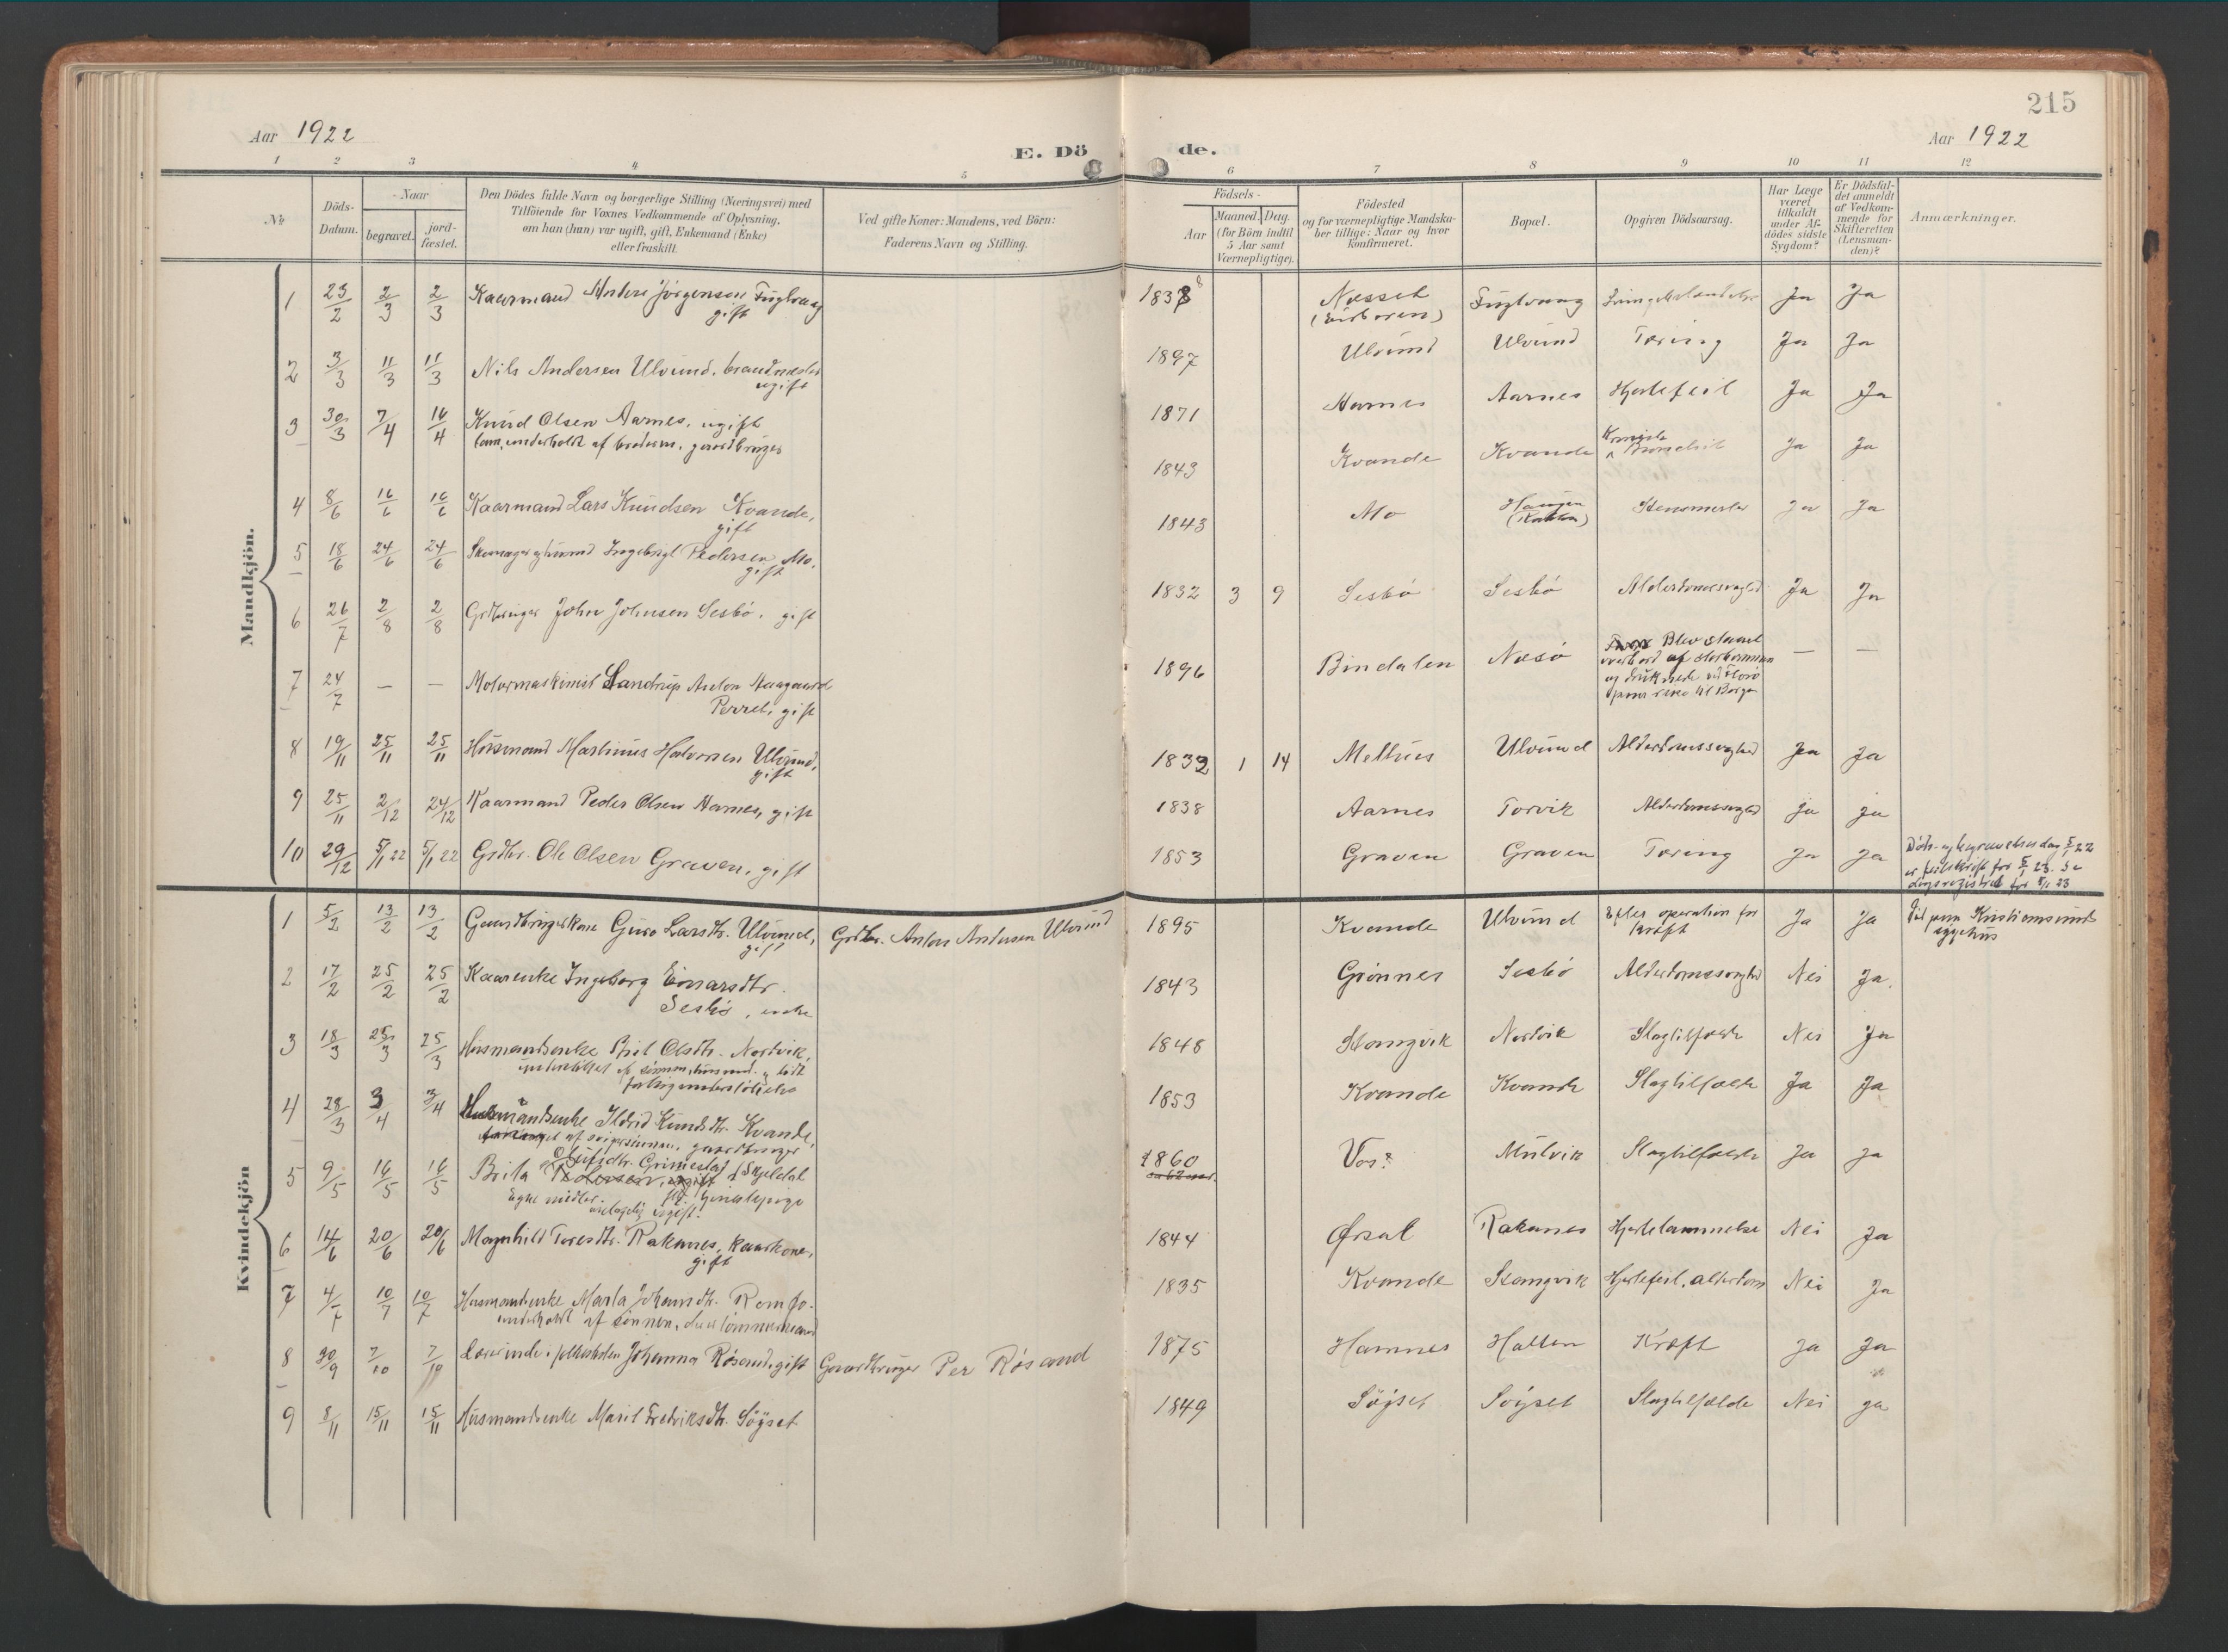 215
Aar 1922
Aar 1922
E. Dö de.
1 2 3 4 5 6 7 8 9 10 11 12
No
Döds-Datum.
Naar
begravet.
jord-fæstet.
Den Dödes fulde Navn og borgerlige Stilling (Næringsvei) med
Tilföiende for Voxnes Vedkommende af Oplysning,
om han (hun) var ugift, gift, Enkemand (Enke)
eller fraskilt.
Ved gifte Koner: Mandens, ved Börn:
Faderens Navn og Stilling.
Födsels-
Aar
Maaned. Dag.
(for Börn indtil
5 Aar samt
Værnepligtige).
Födested
og for værnepligtige Mandska-
ber tillige: Naar og hvor
konfirmeret.
Bopæl.
Opgiven Dödsaarsag.
Har Læge
været
tilkaldt
under Af-
dödes sidste
Sygdom?
Er Dödsfal-
det anmeldt
af Vedkom-
mende for
Skifteretten
(Lensman-
den)?
Anmærkninger.
Mandkjön.
1 23/2 2/3 2/3 Kaarmand Anders Jörgensen Fuglvaag 1838 Næsset Fuglvaag Ja Ja
gift
2 3/3 11/3 11/3 Nils Andersen Ulvund, 1897 Ulvund Ulvund Tæring Ja Ja
ugift
3 30/3 7/4 16/4 Knud Olsen Aarnes, ugift 1871 Aarnes Aarnes Hjertefeil Ja Ja
underholdt af broderen, gaardbruger
4 8/6 16/6 16/6 Kaarmand Lars Knudsen Kvande, 1843 Kvande Kvande Kronisk Ja Ja
gift
5 18/6 24/6 24/6 Ingebrigt Pedersen Mo. 1843 Mo Haugen Ja Ja
gift
6 26/7 2/8 2/8 Grdbruger John Johnsen Sesbö, gift 1832 3 9 Sesbö Sesbö Alderdomssvaghed Ja Ja
7 24/7 — — Motormaskinist Sandrup Anton Aasgaard 1896 Bindalen Næsö Blev slaaet — —
Perret, gift
overbord af storbommen
og druknede ved Florö
paa reise til Bergen
8 19/11 25/11 25/11 Husmand Martinus Halvorsen Ulvund, 1832 1 14 Melhus Ulvund Alderdomssvaghed Ja Ja
gift
9 25/11 2/12 24/12 Kaarmand Peder Olsen Aarnes, gift 1838 Aarnes Torvik Alderdomssvaghed Ja Ja
10 29/12 5/1 22 5/1 22 Grdbr. Ole Olsen Graven, gift 1853 Graven Graven Tæring Ja Ja
Döds- og begravelsesdag 5/1 22
er feilskrift for 5/1 23. Se
dagsregistret for 5/1 23
Kvindekjön
1 5/2 13/2 13/2 Gaardbrugerkone Guro Larsdtr. Ulvund, Grdbr. Anders Andersen Ulvund 1895 Kvande Ulvund Efter operation for Ja Ja Död paa Kristiansunds
gift
kræft
sygehus
2 17/2 25/2 25/2 Kaarenke Ingeborg Einarsdtr. 1843 Grönnes Sesbö Alderdomssvaghed Nei Ja.
Sesbö, enke
3 18/3 25/3 25/3 Husmandsenke Olsdtr. Nordvik, 1848 Stangvik Nordvik Slagtilfælde Nei Ja
fattigunderstöttelse
4 28/3 3/4 3/4 Husmandsenke Ildrid Knudsdtr. Kvande, 1853 Kvande Kvande Slagtilfælde Ja Ja
af svigersönnen, gaardbruger
5 9/5 16/5 16/5 Brita Olufsdtr. Grimestad f. Skjeldal 1860 Vos? Mulvik Slagtilfælde Ja Ja
Egne midler.
ugift.
6 14/6 20/6 20/6 Magnhild Toresdtr. Rakanes, kaarkone, 1844 Ørsal Rakanes Hjertelammelse Nei Ja
gift
7 4/7 10/7 10/7 Husmandsenke Marta Johansdtr. Romfo. 1835 Kvande Stangvik Hjertefeil, alderdom Nei Ja
underholdt af sönnen,
8 30/9 7/10 7/10 Lærerinde i folkeskolen Johanna Røsand, gift Gaardbruger Per Røsand 1875 Hamnes Halten Kræft Ja Ja
9 8/11 15/11 15/11 Husmandsenke Marit Fredriksdtr. Söyset 1849 Söyset Söyset Slagtilfælde Nei Ja